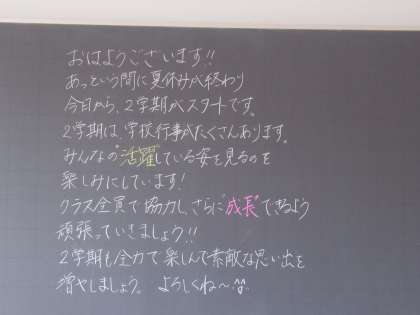 おはようございます!!
あっという間に夏休みが終わり
今日から、2学期がスタートです。
2学期は、学校行事がたくさんあります。
みんなの"活躍"している姿を見るのを
楽しみにしています!
クラス全員で協力し、さらに"成長"できるよう
頑張っていきましょう!!
2学期も全力で楽しんで素敵な思い出を
増やしましょう。 よろしくね〜